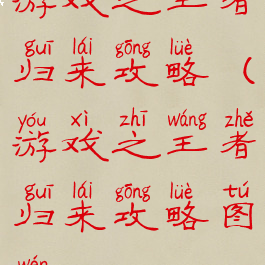 游戏之王者
guī lái gōng lüè
归来攻略（
yóu xì zhī wáng zhě
游戏之王者
guī lái gōng lüè tú
归来攻略图
wén